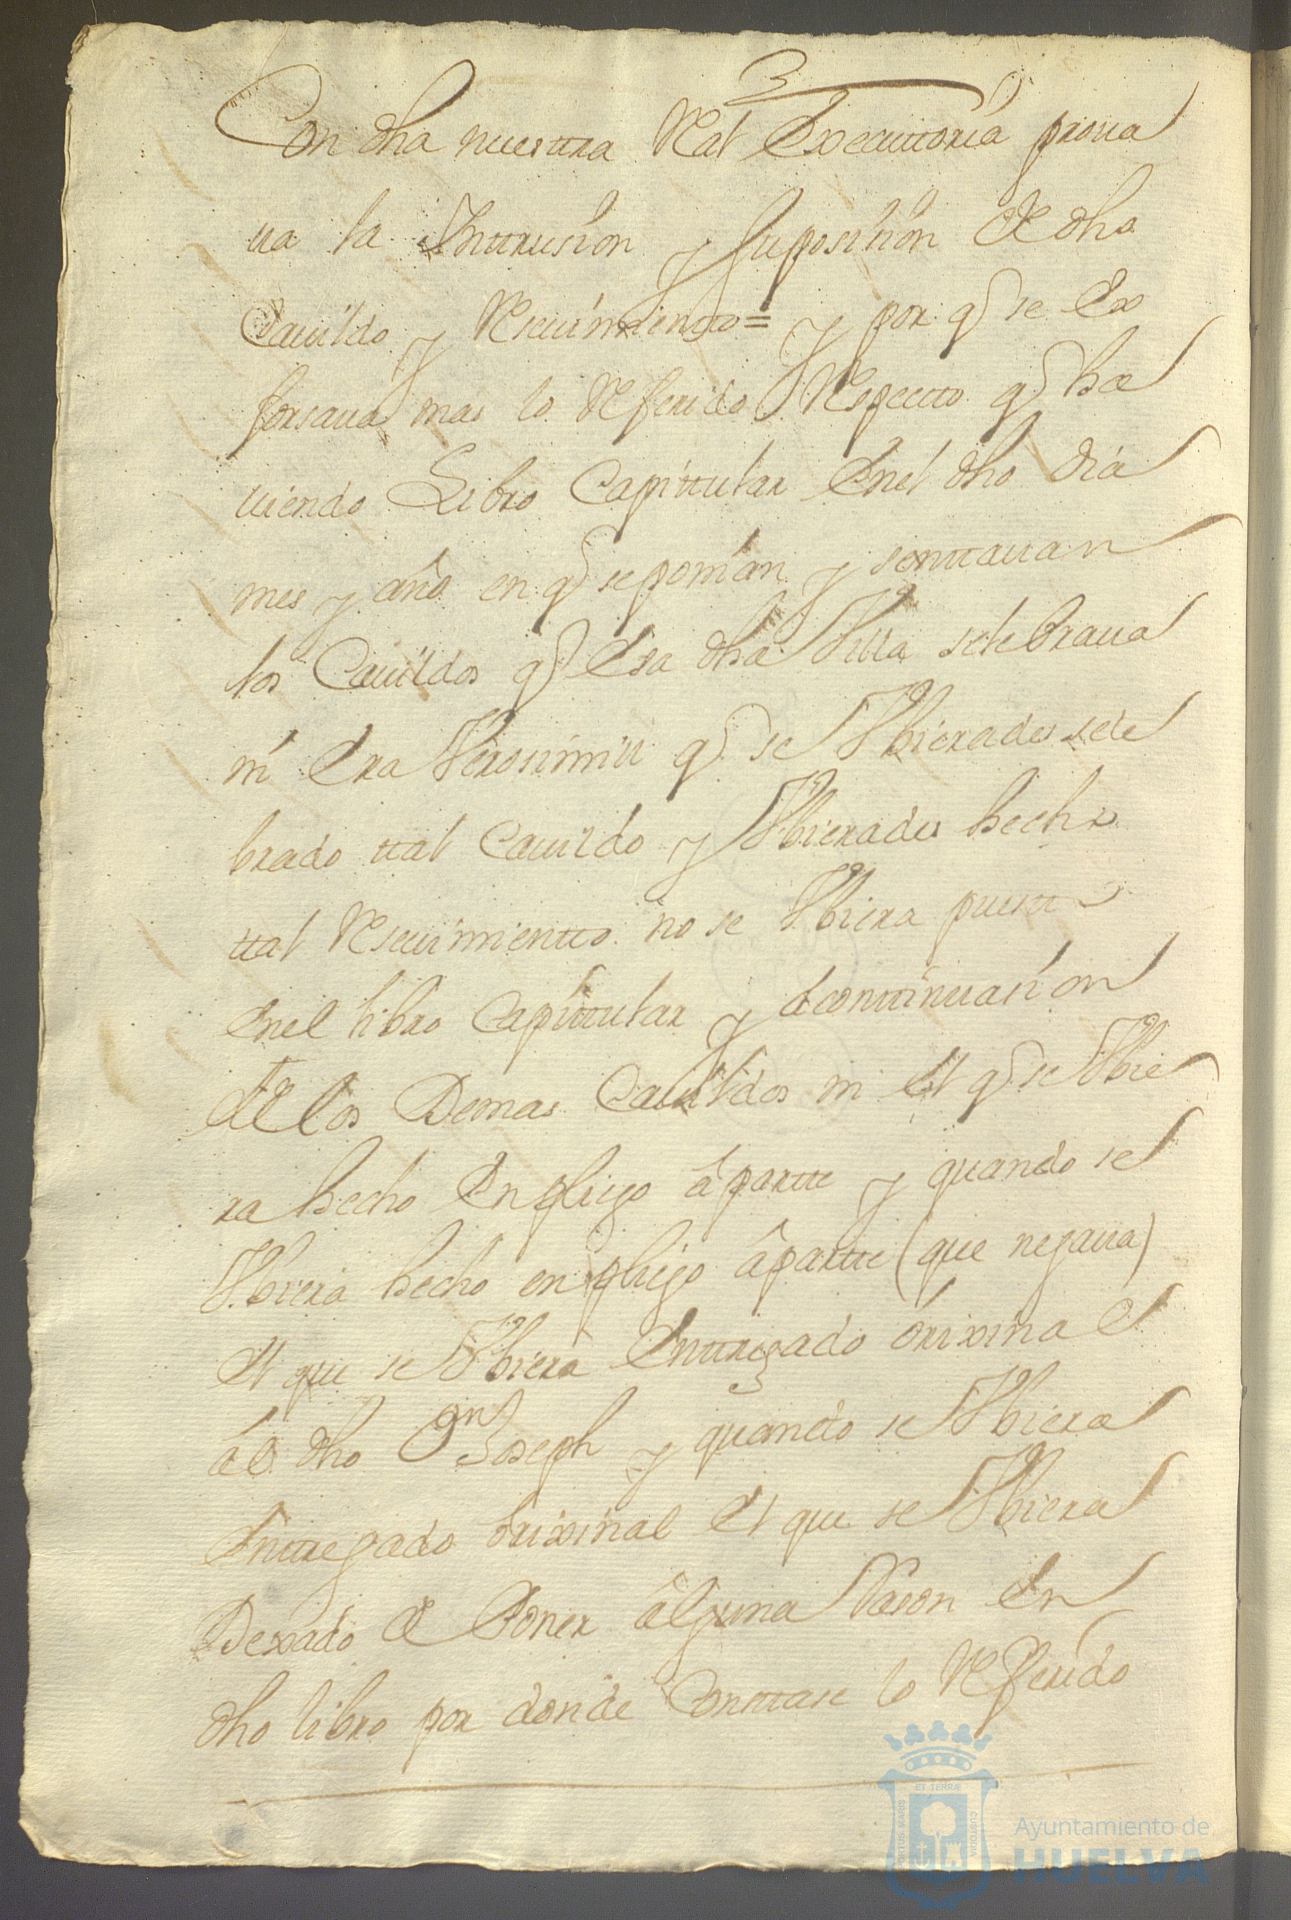 Con dha nuestra Rl Executtoria prova
va la Inttrusion y suposision de dha
Cavildo y Resevimientto = y por q se Ex
forsava mas lo Referido Respectto q ha
viendo Libro Capittular Enel dho dia
mes y año en q se ponian y senttavan
los Cavildos q Esa dha Villa selebrava
ni Era Verosimil q se Vbiera sele
brado ttal Cavildo y Vbiera hecho
ttal Resevimientto no se Vbiera puestto
Enel libro Capittular y âconttinuasion
de los Demas Cavildos ni El q se Vbie
ra hecho En pliego âpartte y quando se
Vbiera hecho en pliego âpartte (que negava)
El que se Vbiera Enttregado orixinal
âl dho Dn Joseph y quando se Vbiera
Enttregado orixinal El que se Vbiera
Dexado de Poner âlguna Rason En
dho libro por donde Consttase lo Referido
Ayuntamiento de
HUELVA